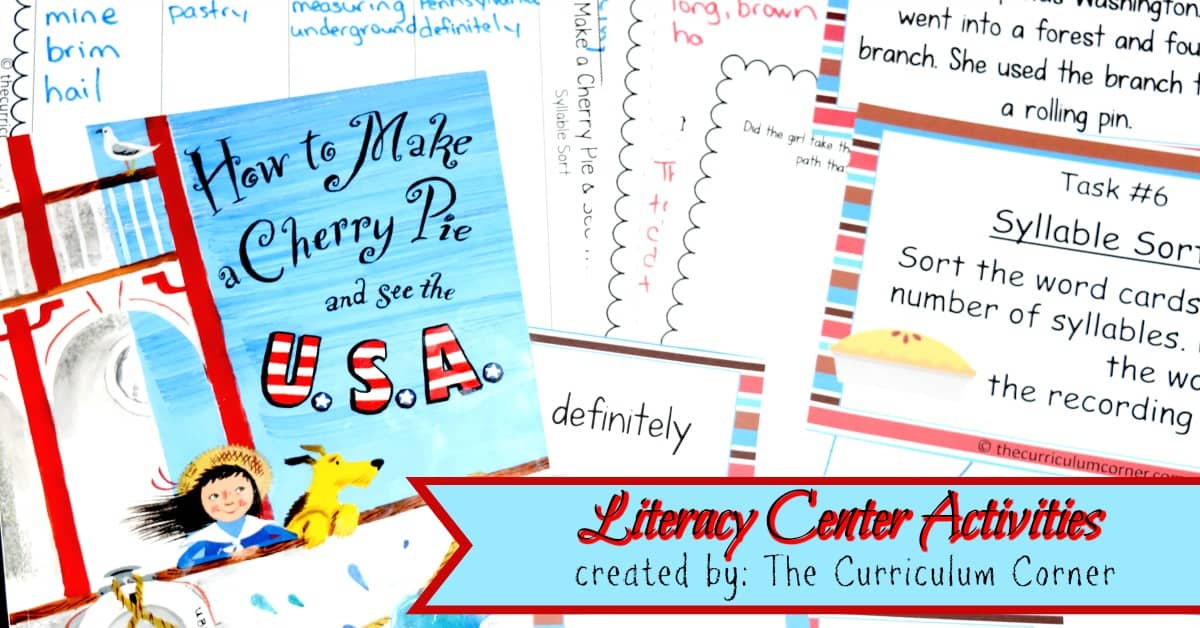 mine
brim
hail
pastry
measuring
underground
definitely
© thecurric
How to Make
a Cherry Pie
and see the
U.S.A.
Make a Cherry Pie & see ...
Syllable Sort
long, brown
ho
Did the girl take th
path tha
Washington
went into a forest and fou
branch. She used the branch t
a rolling pin.
Task #6
Syllable Sort
Sort the word cards
number of syllables.
the wo
the recording
© thecurriculumcorner.com
definitely
Literacy Center Activities
created by: The Curriculum Corner